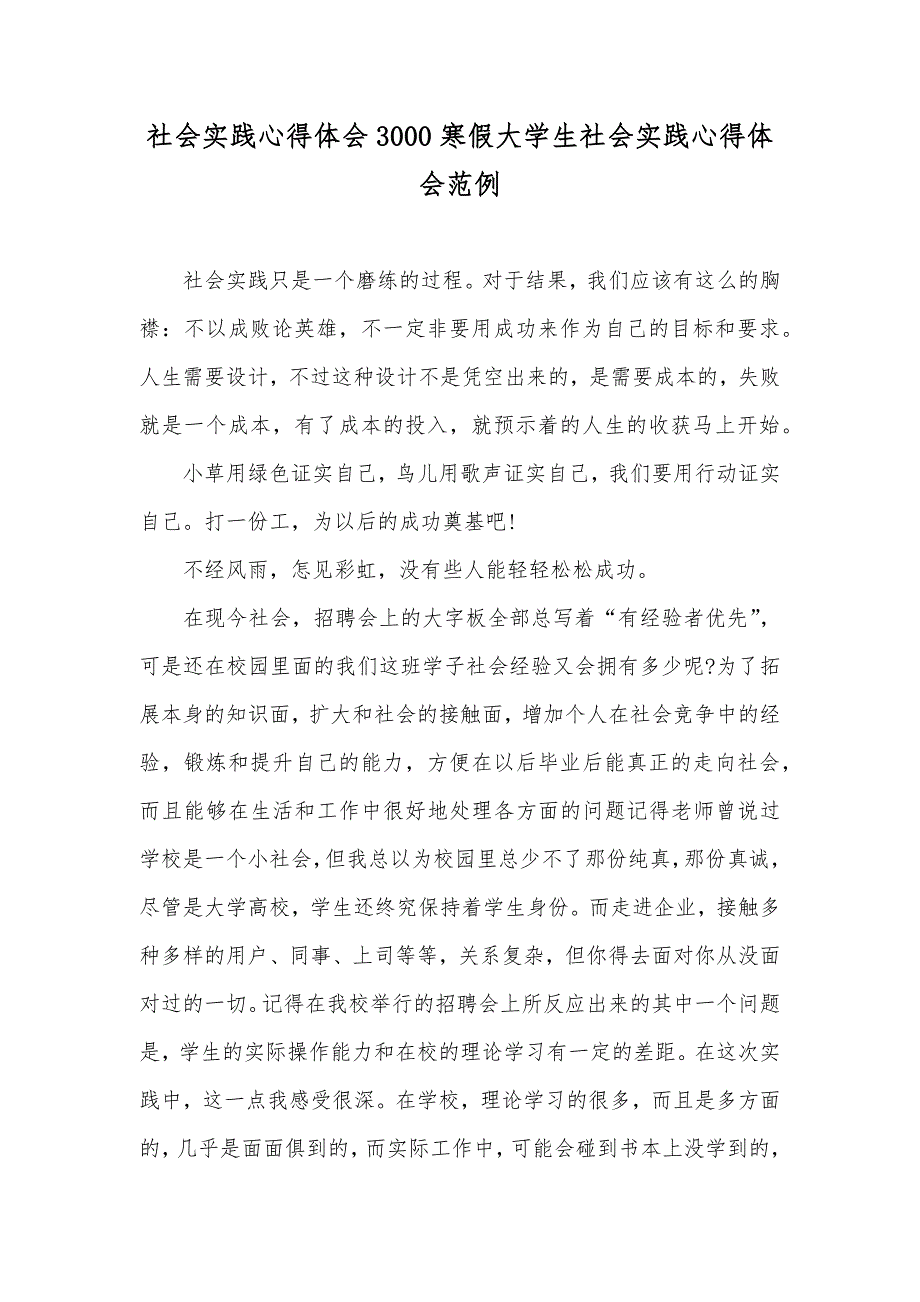 社会实践心得体会 3000 寒假大学生社会实践心得体
会范例
社会实践只是一个磨练的过程。对于结果，我们应该有这么的胸
襟：不以成败论英雄，不一定非要用成功来作为自己的目标和要求。
人生需要设计，不过这种设计不是凭空出来的，是需要成本的，失败
就是一个成本，有了成本的投入，就预示着的人生的收获马上开始。
小草用绿色证实自己，鸟儿用歌声证实自己，我们要用行动证实
自己。打一份工，为以后的成功奠基吧!
不经风雨，怎见彩虹，没有些人能轻轻松松成功。
在现今社会，招聘会上的大字板全部总写着“有经验者优先”，
可是还在校园里面的我们这班学子社会经验又会拥有多少呢?为了拓
展本身的知识面，扩大和社会的接触面，增加个人在社会竞争中的经
验，锻炼和提升自己的能力，方便在以后毕业后能真正的走向社会，
而且能够在生活和工作中很好地处理各方面的问题记得老师曾说过
学校是一个小社会，但我总以为校园里总少不了那份纯真，那份真诚，
尽管是大学高校，学生还终究保持着学生身份。而走进企业，接触多
种多样的用户、同事、上司等等，关系复杂，但你得去面对你从没面
对过的一切。记得在我校举行的招聘会上所反应出来的其中一个问题
是，学生的实际操作能力和在校的理论学习有一定的差距。在这次实
践中，这一点我感受很深。在学校，理论学习的很多，而且是多方面
的，几乎是面面俱到的，而实际工作中，可能会碰到书本上没学到的，